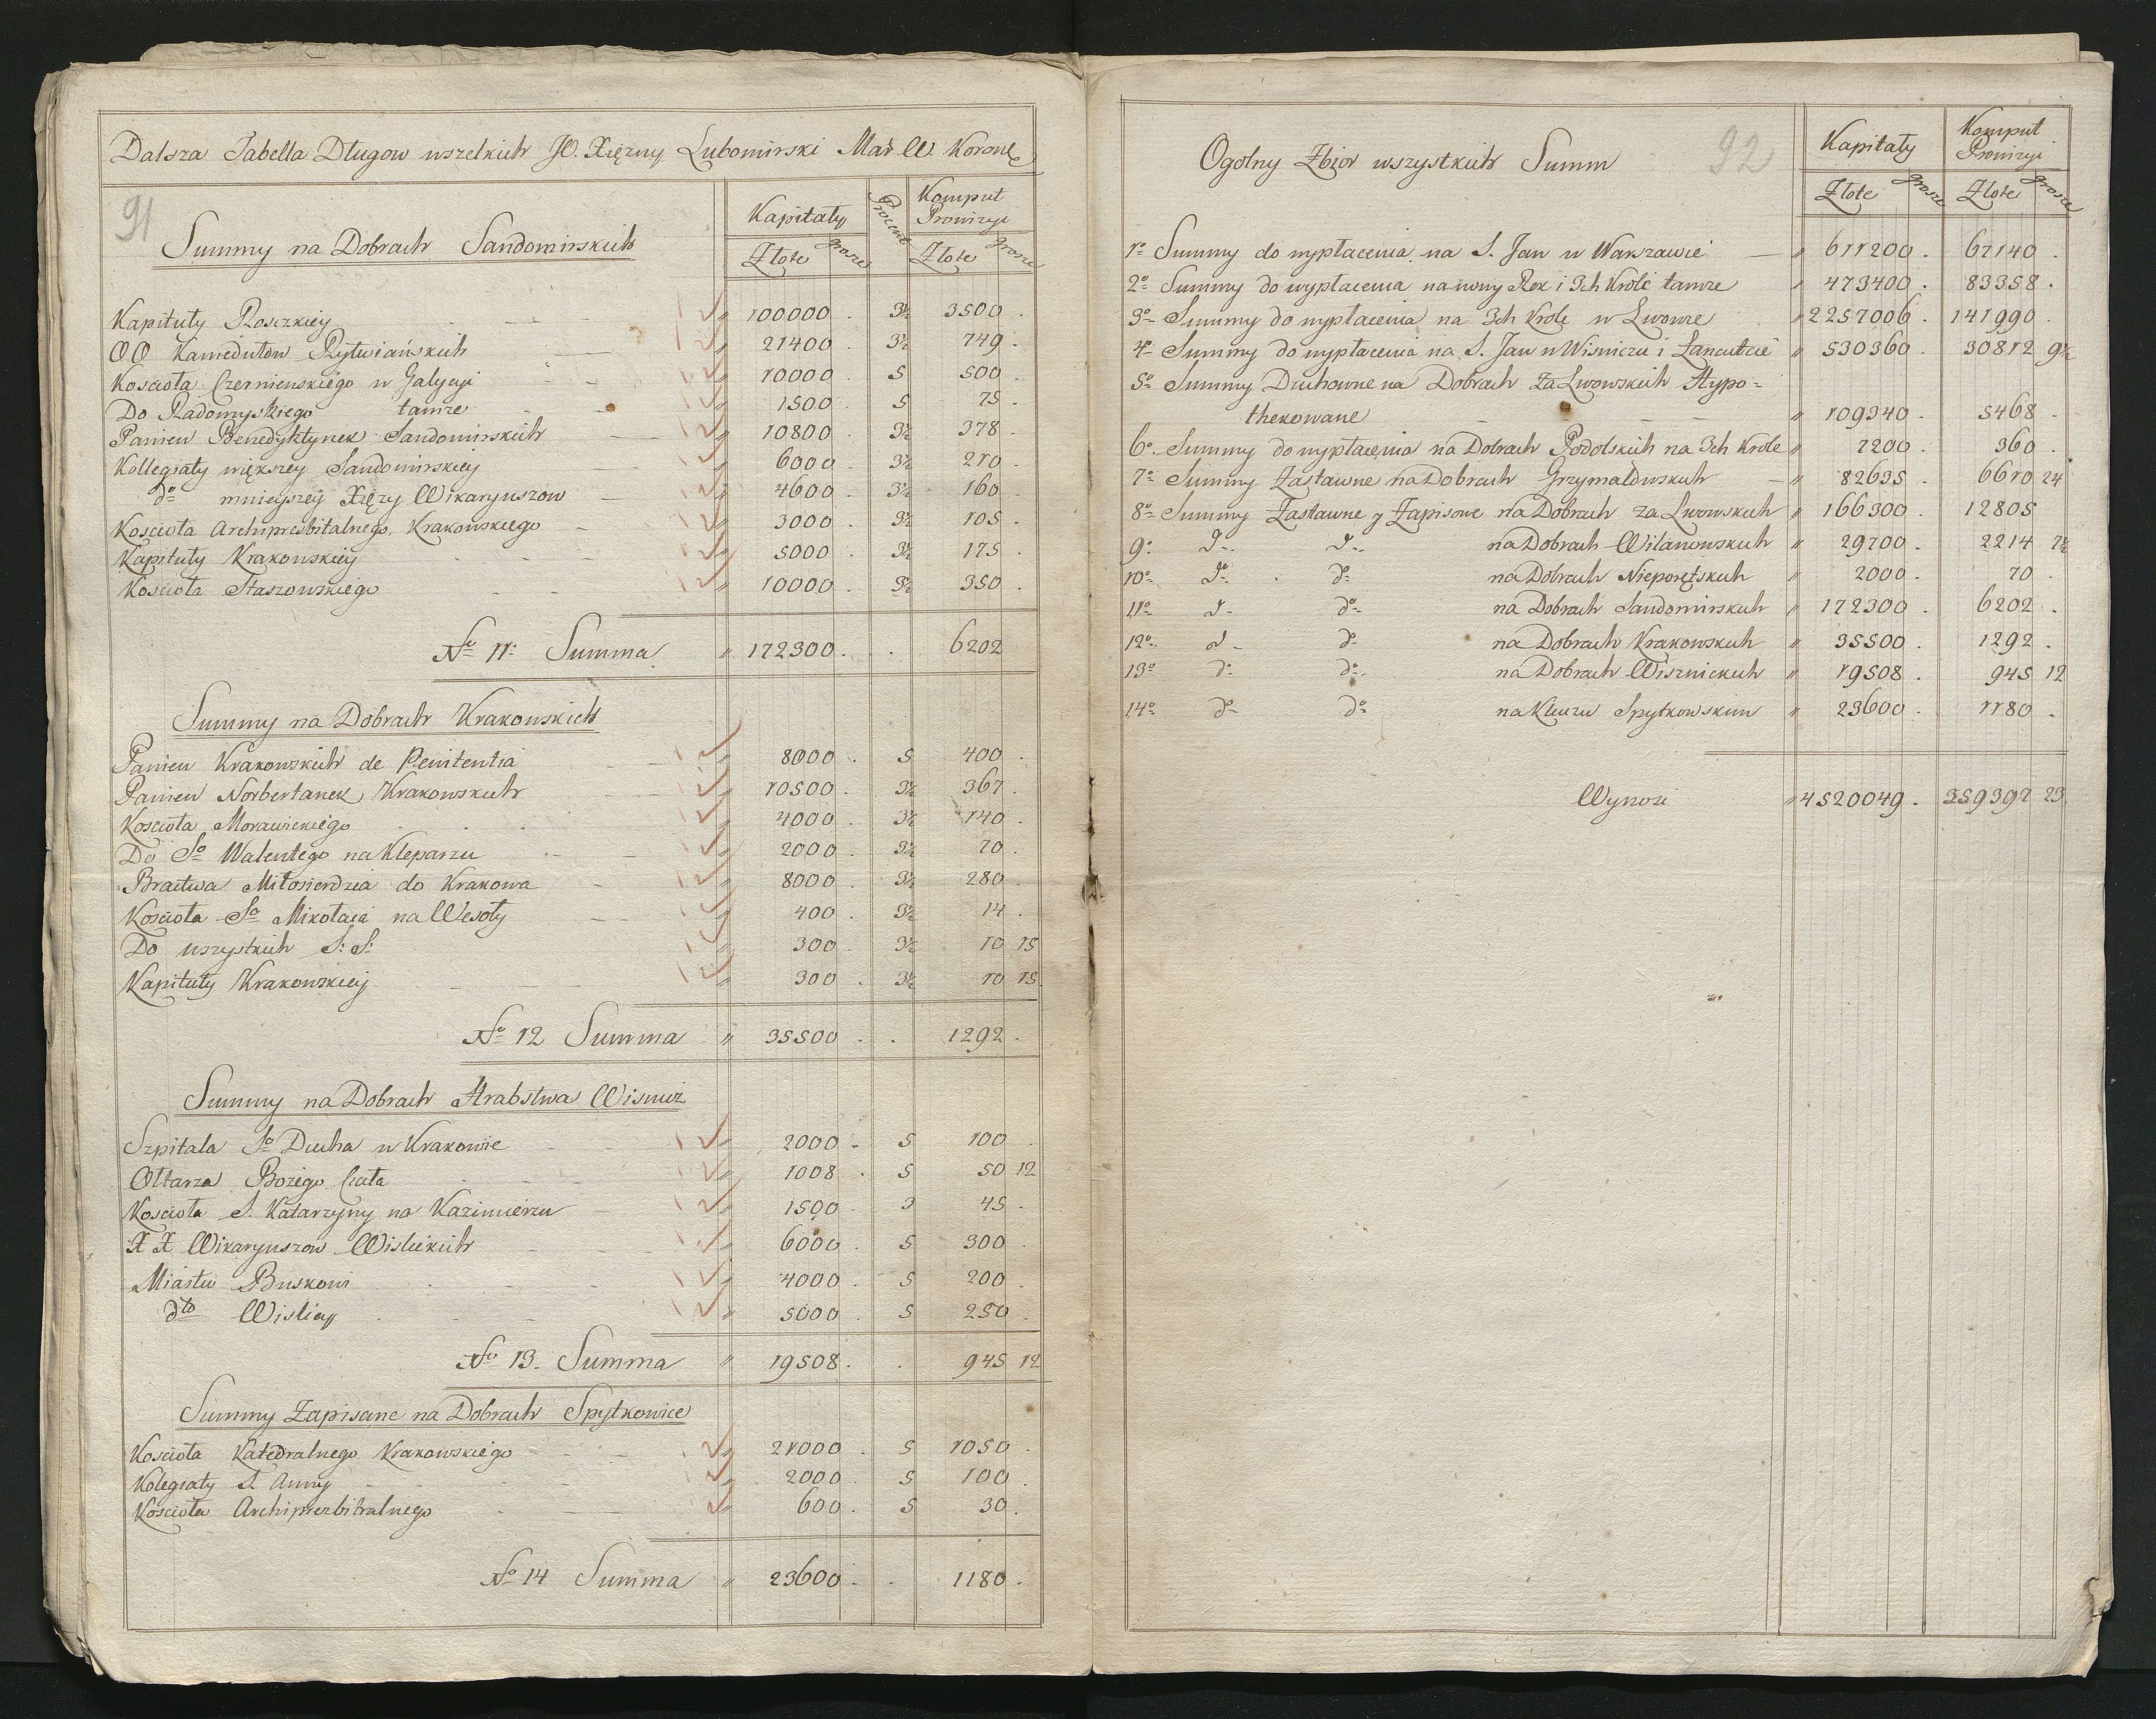 Dalsza Tabella Długow wszelkich JO. Xiężny Lubomirski Mar: W. Koronẽ
91
Summy na Dobrach Sandomirskich
Kapitały Procent Komput Prowizyi
Złote grosze Złote grosze
Kapituły Rosczkiey " 100000 . 3½ 3500 .
OO Kamedułow Rytwiańskich " 21400 . 3½ 749 .
Kościoła Czernienskiego w Galycyi " 10000 . 5 500 .
Do Radomyskiego tamze " 1500 . 5 75 .
Panien Benedyktynek Sandomirskich " 10800 . 3½ 378 .
Kollegiaty większey Sandomirskiey " 6000 . 3½ 210 .
do mnieyszey Xięży Wikaryuszow " 4600 . 3½ 160 .
Kościoła Archipresbitalnego Krakowskiego " 3000 . 3½ 105 .
Kapituły Krakowskiey " 5000 . 3½ 175 .
Kościoła Staszowskiego " 10000 . 3½ 350 .
No 11: Summa " 172300 . . 6202
Summy na Dobrach Krakowskich
Panien Krakowskich de Penitentia " 8000 . 5 400 .
Panien Norbertanek Krakowskich " 10500 . 3½ 367 .
Kościoła Morawickiego " 4000 . 3½ 140 .
Do So Walentego na Kleparzu " 2000 . 3½ 70 .
Bractwa Miłosierdzia do Krakowa " 8000 . 3½ 280 .
Kościoła So Mikołaia na Wesoły " 400 . 3½ 14 .
Do wszystkich S: S: " 300 . 3½ 10 15
Kapituły Krakowskiey " 300 . 3½ 10 15
No 12 Summa " 35500 . . 1292 .
Summy na Dobrach Hrabstwa Wisnicz
Szpitala So Ducha w Krakowie " 2000 . 5 100 .
Ołtarza Bożego Ciała " 1008 . 5 50 12
Kościoła S. Katarzyny na Kazimierzu " 1500 . 3 45 .
X X Wikaryuszow Wislickich " 6000 . 5 300 .
Miastu Buskowi " 4000 . 5 200 .
dto Wislicy " 5000 . 5 250 .
No 13. Summa " 19508 . . 945 12
Summy Zapisane na Dobrach Spytkowice
Kościoła Katedralnego Krakowskiego " 21000 . 5 1050 .
Kolegiaty S. Anny " 2000 . 5 100 .
Kościoła Archiprezbitralnego " 600 . 5 30 .
No 14 Summa " 23600 . . 1180 .
Ogolny Zbior wszystkich Summ 92
Kapitały Komput Prowizyi
Złote grosze Złote grosze
1o Summy do wypłacenia na S. Jan w Warszawie " 611200 . 67140 .
2o Summy do wypłacenia na nowy Rok i 3ch Krole tamze " 473400 . 83358 .
3o Summy do wypłacenia na 3ch Krole w Lwowie " 2257006 . 141990 .
4o Summy do wypłacenia na S. Jan w Wisniczu i Lancutcie " 530360 . 30812 9½
5o Summy Duchowne na Dobrach za Lwowskich Hypo=
thekowane " 109340 . 5468 .
6o. Summy do wypłacenia na Dobrach Podolskich na 3ch Krole " 7200 . 360 .
7o Summy Zastawne na Dobrach Grzymałowskich " 82635 . 6610 24
8o Summy Zastawne y Zapisowe na Dobrach za Lwowskich " 166300 . 12805
9o. do do na Dobrach Wilanowskich " 29700 . 2214 7½
10o do do na Dobrach Nieporętskich " 2000 . 70 .
11o do do na Dobrach Sandomirskich " 172300 . 6202 .
12o do do na Dobrach Krakowskich " 35500 . 1292 .
13o do do na Dobrach Wisznickich " 19508 . 945 12
14o do do na Kluczu Spytkowskim " 23600 . 1180 .
Wynosi " 4520049 . 359397 23